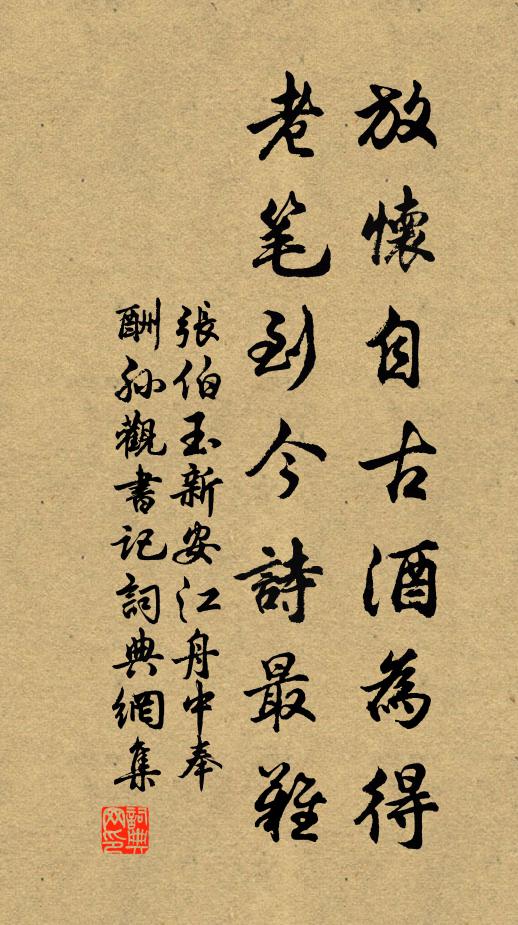 放懷自古酒為得
老笔到今詩最難
張伯玉新安江舟中奉
酬孙觀書记詞典網集
詞典网印